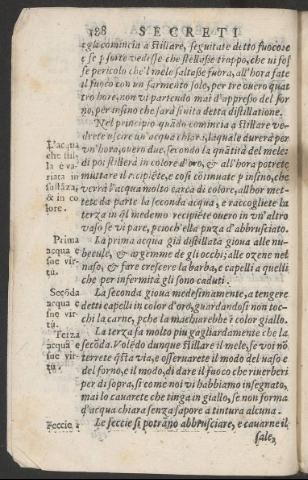 188 SECRETI
egli comincia a stillare, seguitate detto fuoco, e
e se p sorte vedesse che stillasse troppo, che vi fos
se pericolo che'l mele saltasse fuora, all'hora fate
il fuoco con un sarmento sole, per tre ouero quat
tro hore, non vi partendo mai d'appresso del for
no, per insino che sarà finita detta distillatione.
Nel principio quādo comincia a stillare ve-
drete uscire un'acqua chiara, laquale durerà per
vn'hora, ouero due, secondo la quātità del mele:
di poi stillerà in colore d'oro, & all'hora potrete
muttare il recipiēte, e così cōtinuate p insino, che
verrà l'acqua molto carca di colore, all'hor met-
rete da parte la seconda acqua, e raccogliete la
terza in ql medemo recipiēte ouero in vn'altro
vaso se vi pare, p cioch'ella puza d'abbrusciato.
L'acqua
che stil-
la è va-
riata in
sustāza,
& in co
lore.
La prima acqua già distillata gioua alle nu-
beeule, & argemme de gli occhi; alle ozene nel
naso, & fare crescere la barba, e capelli a quelli
che per infermità gli sono caduti.
Prima
acqua e
sue vir-
tù.
La seconda gioua medesimamente, a tengere
detti capelli in color d'oro, guardandosi non toc-
chi la carne, pche la machiarebbe ī color giallo.
Secōda
acqua e
sue vir-
tù.
La terza fa molto piu gagliardamente che la
secōda. Volēdo dunque stillare il mele, se voi nō
terrete qsta via, e osseruarete il modo del vaso e
del forno, e il modo, di dare il fuoco che riuerberi
per di sopra, sì come noi vi habbiamo insegnato,
mai lo cauarete che tinga in giallo, se non forma
d'acqua chiara senza sapore a tintura alcuna.
Terza
acqua e
sue vir-
tù.
Feccie.
Le feccie si potrāno abbrusciare, e cauarne il
sale,